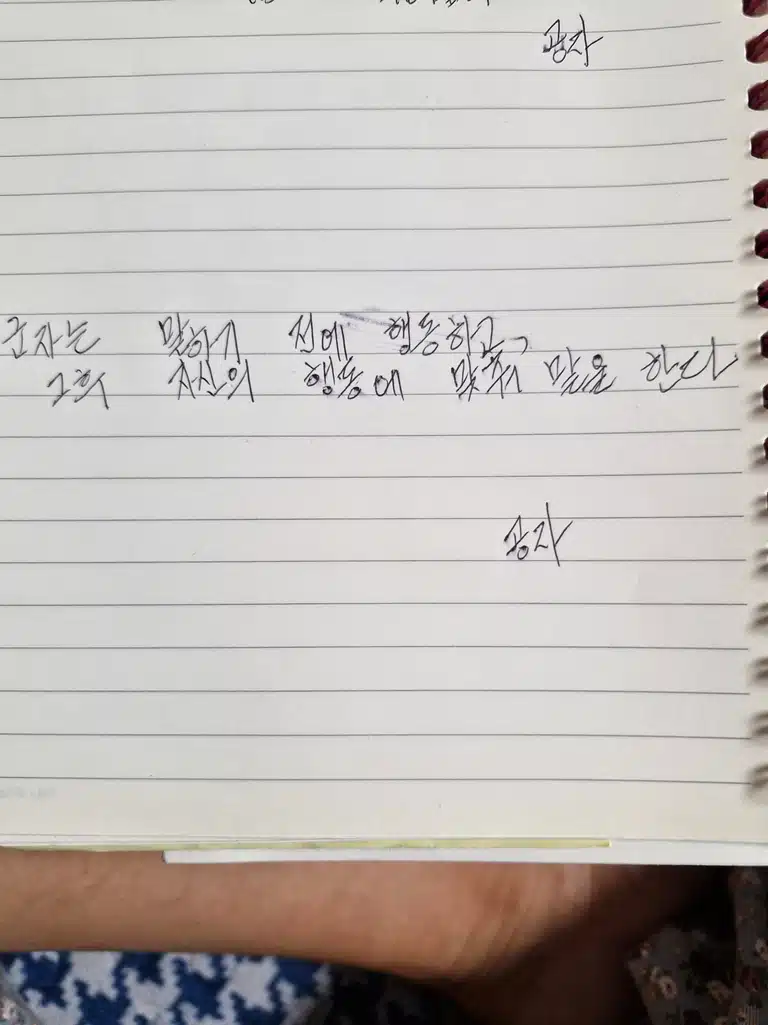 공자
군자는 말하기 전에 행동하고,
그후 자신의 행동에 맞춰 말을 한다
공자